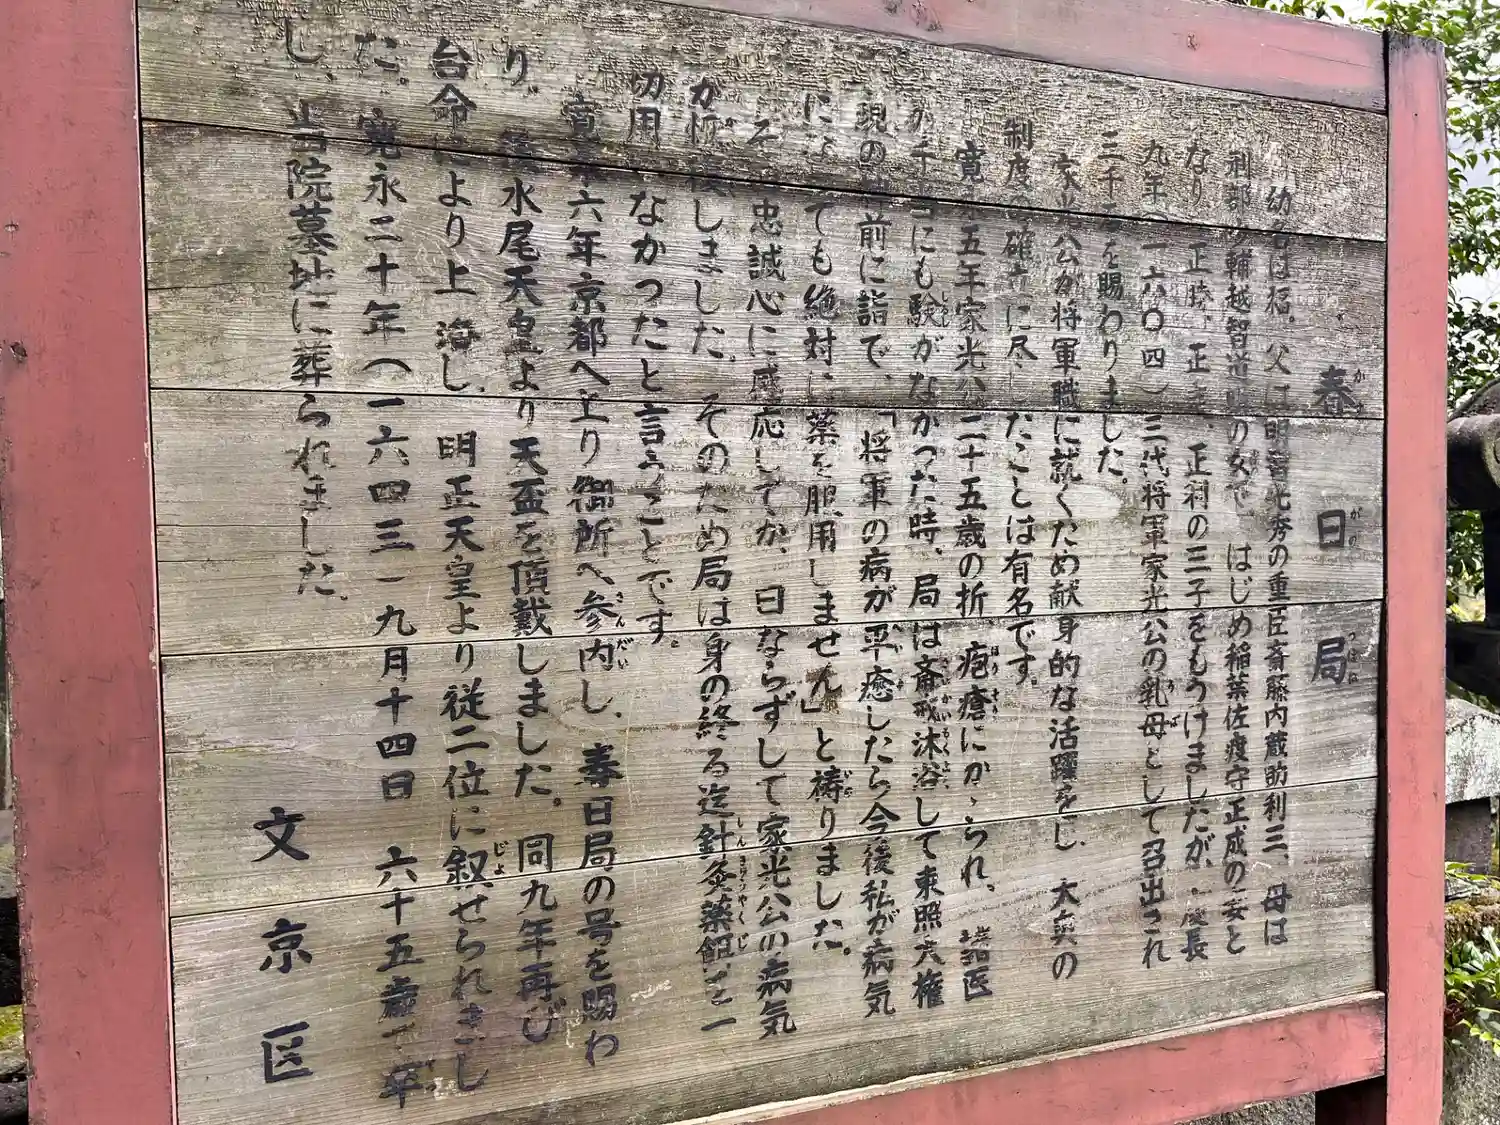 春日局
かすがのつぼね
幼名は福。父は明智光秀の重臣斎藤内蔵助利三、母は
刑部少輔越智道の女で、はじめ稲葉佐渡守正成の妻と
なり、正勝、正、正利の三子をもうけましたが、慶長
九年(一六〇四)三代将軍家光公の乳母として召出され
三千石を賜わりました。
家光公が将軍職に就くため献身的な活躍をし、大奥の
制度の確立に尽したことは有名です。
寛永五年家光公二十五歳の折、疱瘡にかゝられ、諸医
が手当にも験がなかった時、局は斎戒沐浴して東照大権
現の神前に詣で、「将軍の病が平癒したら今後私が病気
になっても絶対に薬を服用しません」と祷りました。
その忠誠心に感応してか、日ならずして家光公の病気
が恢復しました。そのため局は身の終る迄針灸薬餌を一
切用いなかったと言うことです。
寛永六年京都へ上り御所へ参内し、春日局の号を賜わ
り、後水尾天皇より天盃を頂戴しました。同九年再び
台命により上洛し、明正天皇より従二位に叙せられまし
た。寛永二十年(一六四三)九月十四日 六十五歳で卒
し、当院墓地に葬られました。
文京区